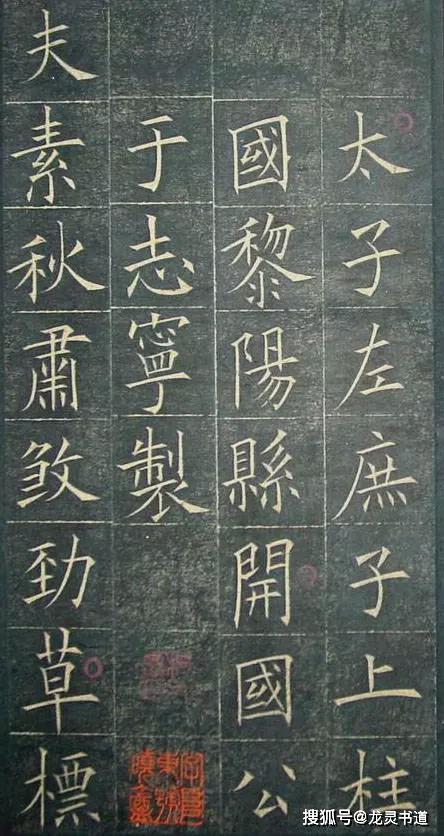 太子左庶子上柱
國黎陽縣開國公
于志寧製
夫素秋肅煞勁草標
搜狐号@龙灵书道